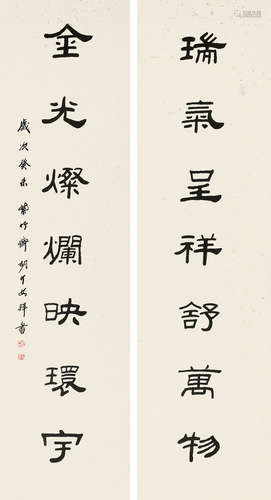 瑞氣呈祥舒萬物
金光燦爛映環宇
歲次癸未 紫竹齋胡介文拜書